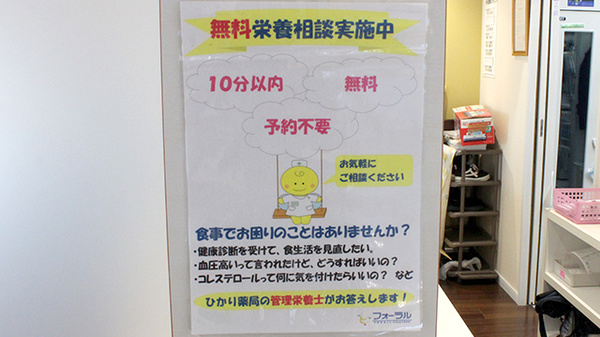 無料栄養相談実施中
10分以内
無料
予約不要
お気軽に
ご相談ください
食事でお困りのことはありませんか?
・健康診断を受けて、食生活を見直したい。
・血圧高いって言われたけど、どうすればいいの?
・コレステロールって何に気を付けたらいいの? など
ひかり薬局の管理栄養士がお答えします!
フォーラル